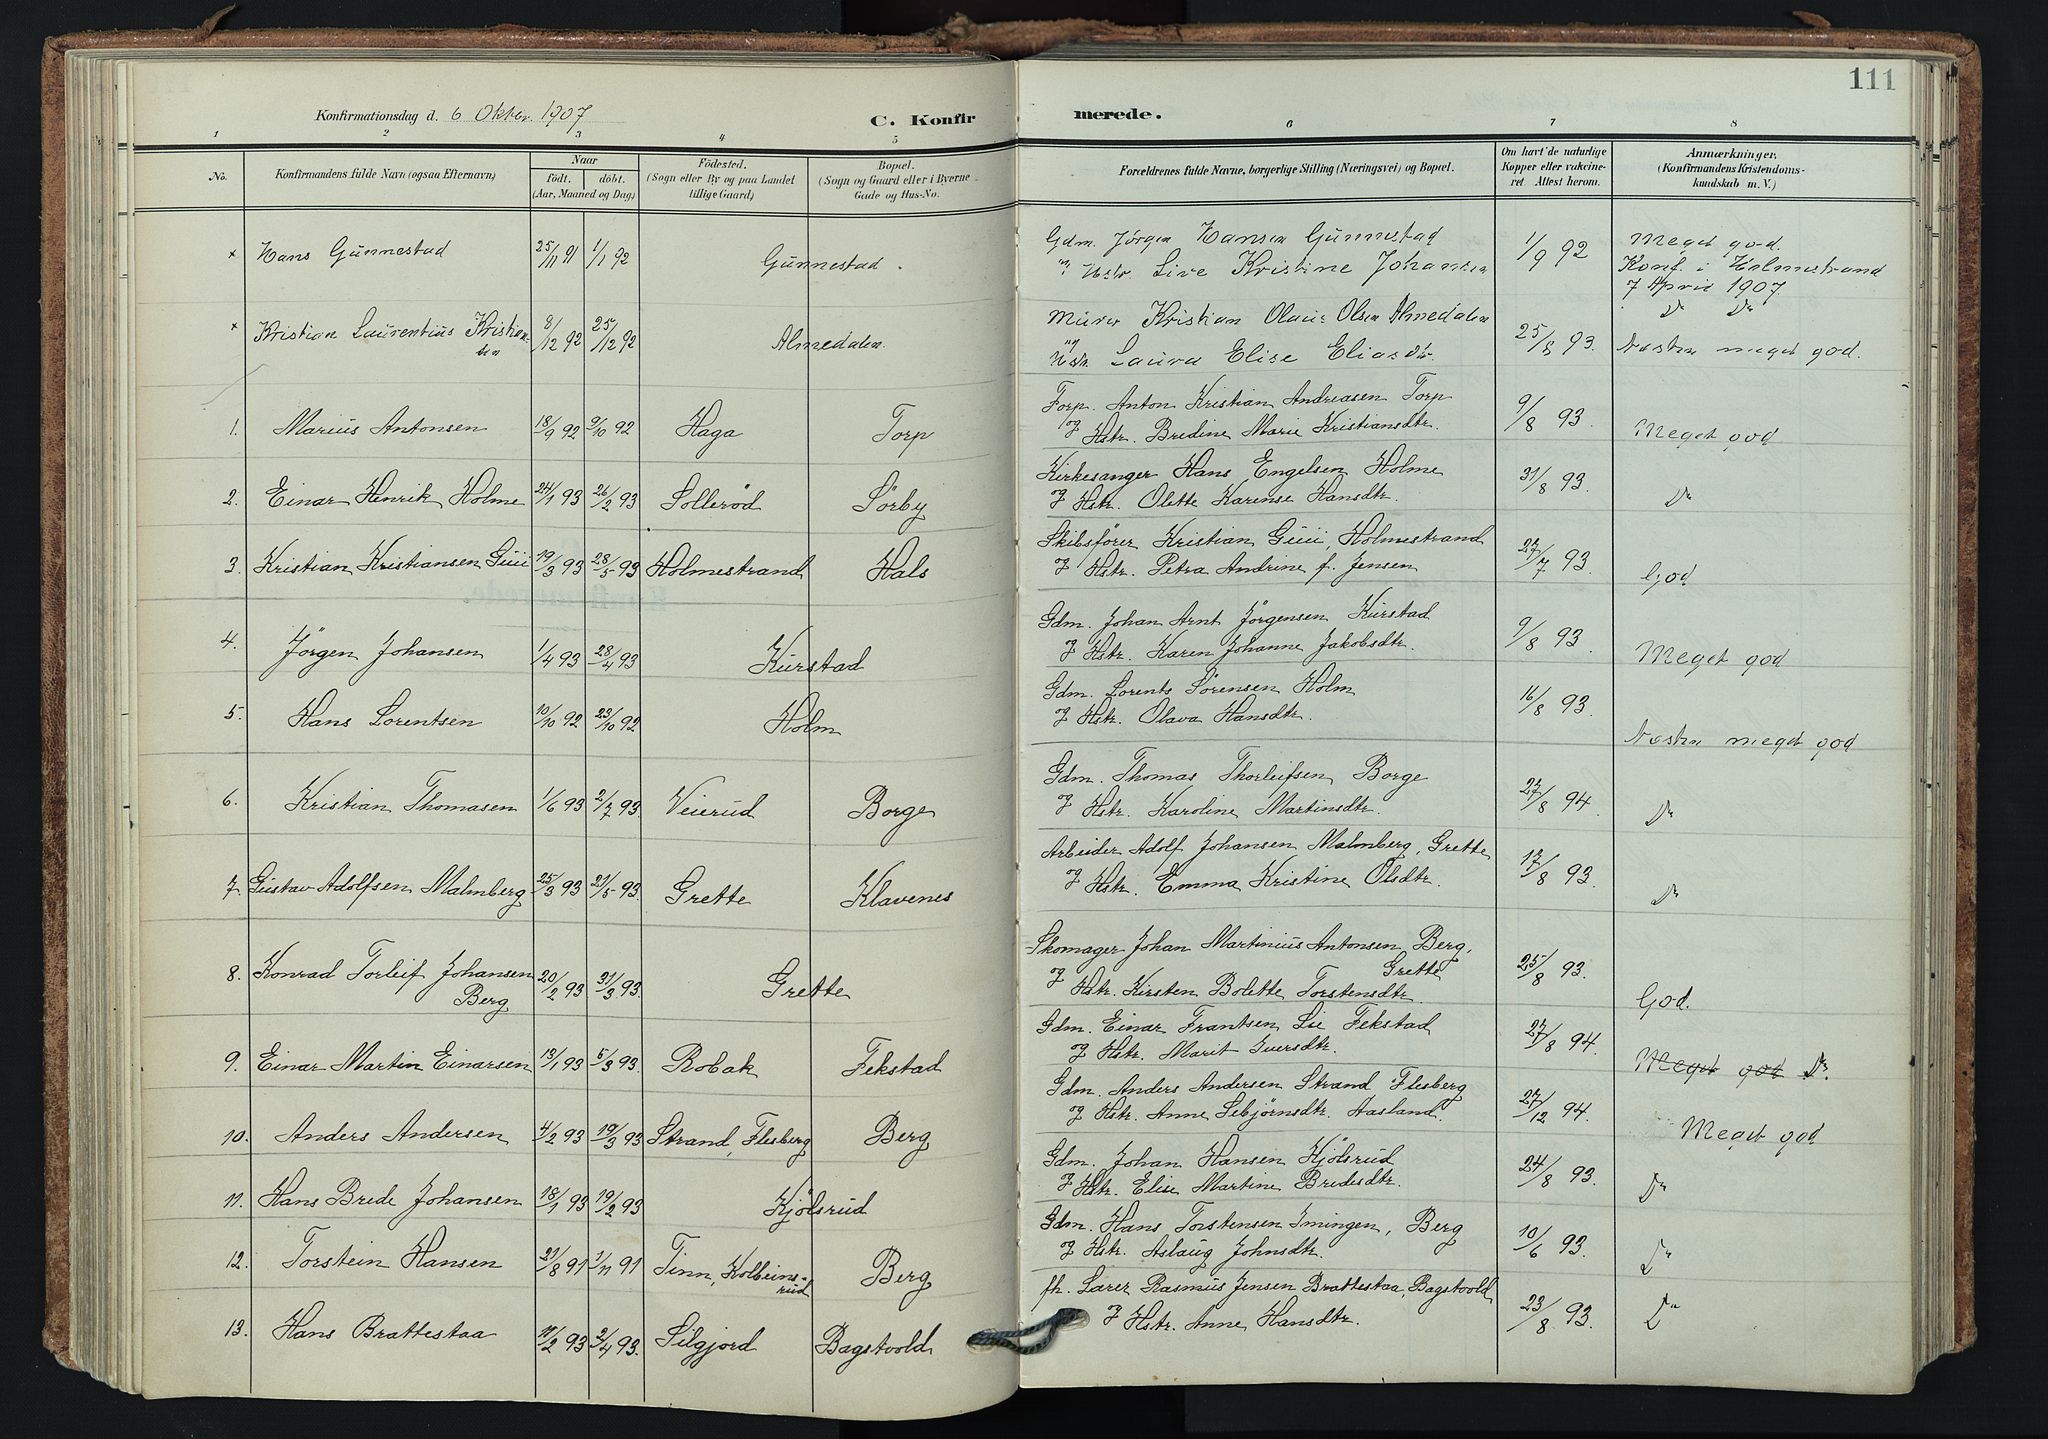 111
Konfirmationsdag d. 6 Oktbr. 1907
C. Konfir
merede.
1 2 3 4 5 6 7 8
No.
Konfirmandens fulde Navn (ogsaa Efternavn).
Naar
födt. döbt.
(Aar, Maaned og Dag)
Födested.
(Sogn eller By og paa Landet
tillige Gaard)
Bopæl.
(Sogn og Gaard eller i Byerne
Gade og Hus-No.
Forældrenes fulde Navne, borgerlige Stilling (Næringsvei) og Bopæl.
Om havt de naturlige
Kopper eller vakcine-
ret. Attest herom.
Anmærkninger,
(Konfirmandens Kristendoms-
kundskab m. V.)
x Hans Gunnestad 25/11 91 1/1 92 Gunnestad.
Gdm. Jörgen Hansen Gunnestad
og Hstr. Live Kristine Johansen
1/9 92
Meget god.
Konf. i Holmestrand
7 April 1907.
x Kristian Laurentius Kristian-
sen
8/12 92 25/12 92 Almedalen.
Murer Kristian Olaus Olsen Almedalen
og
Hstr. Laura Elise Eliasdtr.
25/8 93.
Do Do
Næsten meget god.
1. Marius Antonsen 18/9 92 9/10 92 Haga Torp
Forp. Anton Kristian Andreasen Torp
og Hstr. Bredine Marie Kristiansdtr.
9/8 93.
Meget god
2. Einar Henrik Holme 24/1 93 26/2 93 Solleröd Sörby
Kirkesanger Hans Engelsen Holme
og Hstr. Olette Karense Hansdtr.
31/8 93.
Do
3. Kristian Kristiansen Guii 19/3 93 28/5 93 Holmestrand Hals
Skibsförer Kristian Guii, Holmestrand
og Hstr. Petra Andrine f. Jensen
27/7 93.
God
4. Jörgen Johansen 1/4 93 28/4 93 Kurstad
Gdm. Johan Arnt Jörgensen Kurstad
og Hstr. Karen Johanne Jakobsdtr.
9/8 93.
Meget god
5. Hans Lorentsen 10/10 92 23/10 92 Holm
Gdm. Lorents Sörensen Holm
og Hstr. Olava Hansdtr.
16/8 93.
Næsten meget god
6. Kristian Thomasen 1/6 93 2/7 93. Veierud Borge
Gdm. Thomas Thorleifsen Borge
og Hstr. Karoline Martinsdtr.
27/8 94.
Do
7. Gustav Adolfsen Malmberg 25/3 93 21/5 93. Grette Klavenes
Arbeider Adolf Johansen Malmberg, Grette
og Hstr. Emma Kristine Olsdtr.
17/8 93.
Do
8. Konrad Torleif Johansen
Berg
20/2 93 31/3 93. Grette
Skomager Johan Martinius Antonsen Berg,
Grette
og Hstr. Kirsten Bolette Torstensdtr.
25/8 93.
God.
9. Einar Martin Einarsen 13/1 93 5/3 93. Robak Fekstad
Gdm. Einar Frantsen Lie Fekstad
og Hstr. Marit Iversdtr.
27/8 94.
Meget god Do.
10. Anders Andersen 4/2 93 19/3 93 Strand, Flesberg Berg
Gdm. Anders Andersen Strand Flesberg
og Hstr. Anne Sebjörnsdtr. Aasland.
27/12 94.
Meget god
11. Hans Brede Johansen 18/1 93 19/2 93 Kjölsrud
Gdm. Johan Hansen Kjölsrud
og Hstr. Elise Martine Bredesdtr.
24/8 93.
Do
12. Torstein Hansen 21/8 91 1/11 91 Tinn, Kolbeins-
rud Berg
Gdm. Hans Torstensen Imingen, Berg
og Hstr. Aslaug Johnsdtr.
10/6 93.
Do
13. Hans Brattestaa 11/2 93 2/4 93. Silgjord Bagstvold
fh. Lærer Rasmus Jensen Brattestaa, Bagstvold
og Hstr. Anne Hansdtr.
23/8 93.
Do